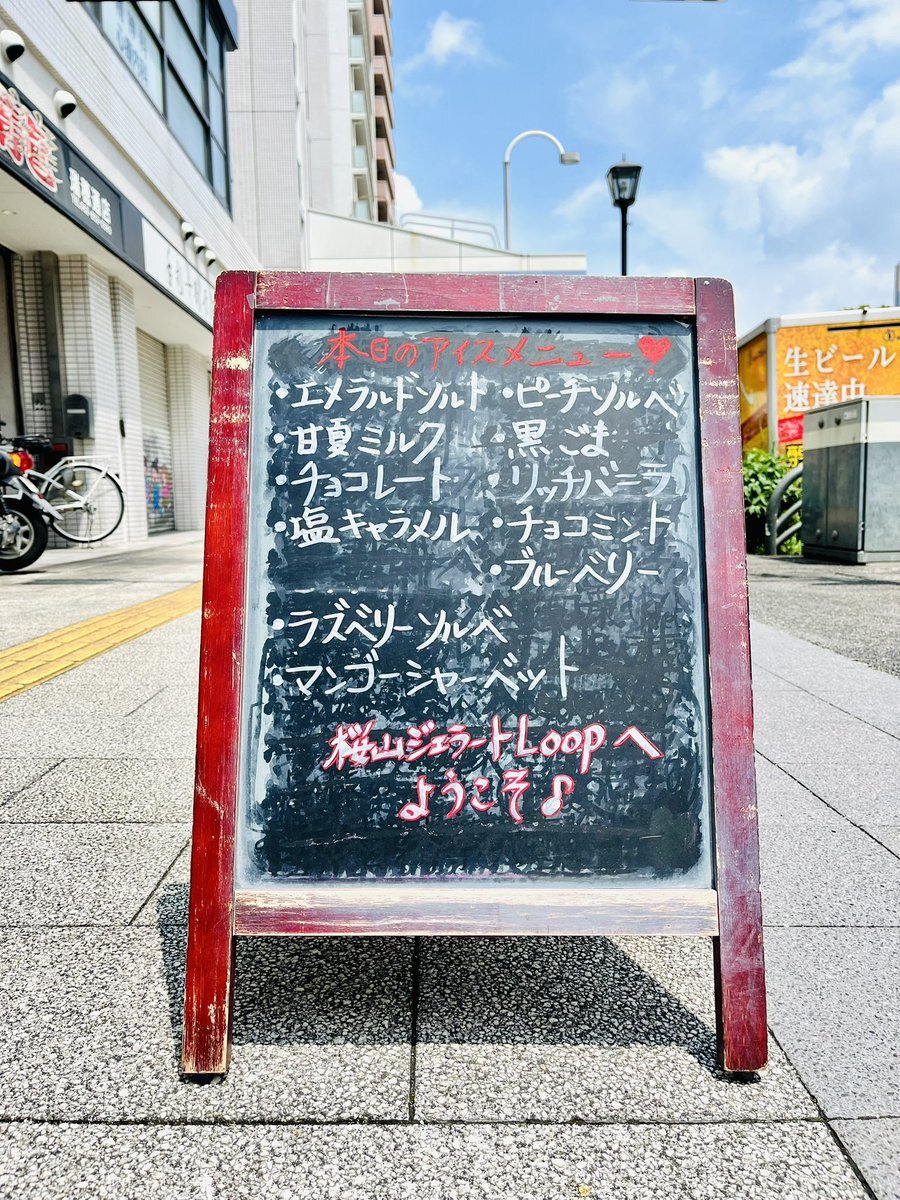 本日のアイスメニュー♥
・エメラルドソルト
・甘夏ミルク
・チョコレート
・塩キャラメル
・ラズベリーソルベ
・マンゴーシャーベット
・ピーチソルベ
・黒ごま
・リッチバニラ
・チョコミント
・ブルーベリー
桜山ジェラートLoopへ
ようこそ♪
生ビール
速達中